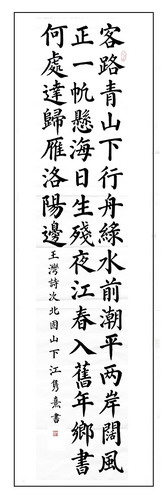 客路青山下行舟綠水前潮平两岸闊風
正一帆懸海日生殘夜江春入舊年鄉書
何處達歸雁洛陽邊
王灣詩次北固山下江雋熹書